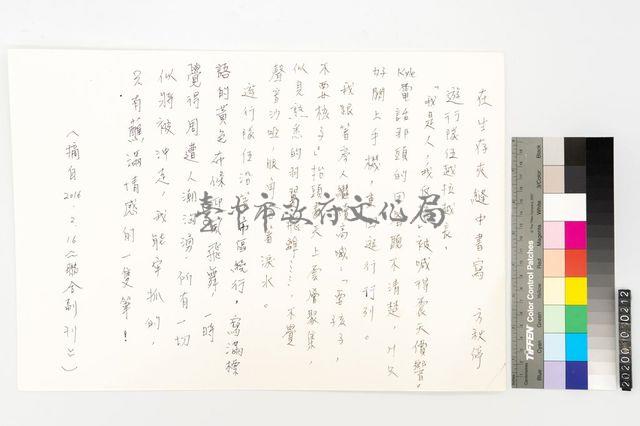 在生存夾縫中書寫 方秋停
遊行隊伍越拉越長
「我是人,我反核」被喊得震天價響。
Kyle電話那頭的回答聽不清楚,八女
好關上手機,重回遊行行列。
我跟著旁人繼續高喊:「要孩子,
不要核子」抬頭天上雲層聚集,
似見熟悉的羽翼飛離……,不覺
聲音沙啞,眼淚
遊行隊伍沿市區繞行,寫滿標
語的黃色布條迎風飛舞,一時
覺得周遭人潮洶湧,所有一切
似將被沖走,我能牢抓的,
只有蘸滿情感的一隻筆!
(摘自2016.2.16《聯合副刊》)
臺中市政府文化局
TIFFEN Color Control Patches
Black
3/Color
White
Magenta
Red
Yellow
Green
Cyan
Blue
20200101 0212